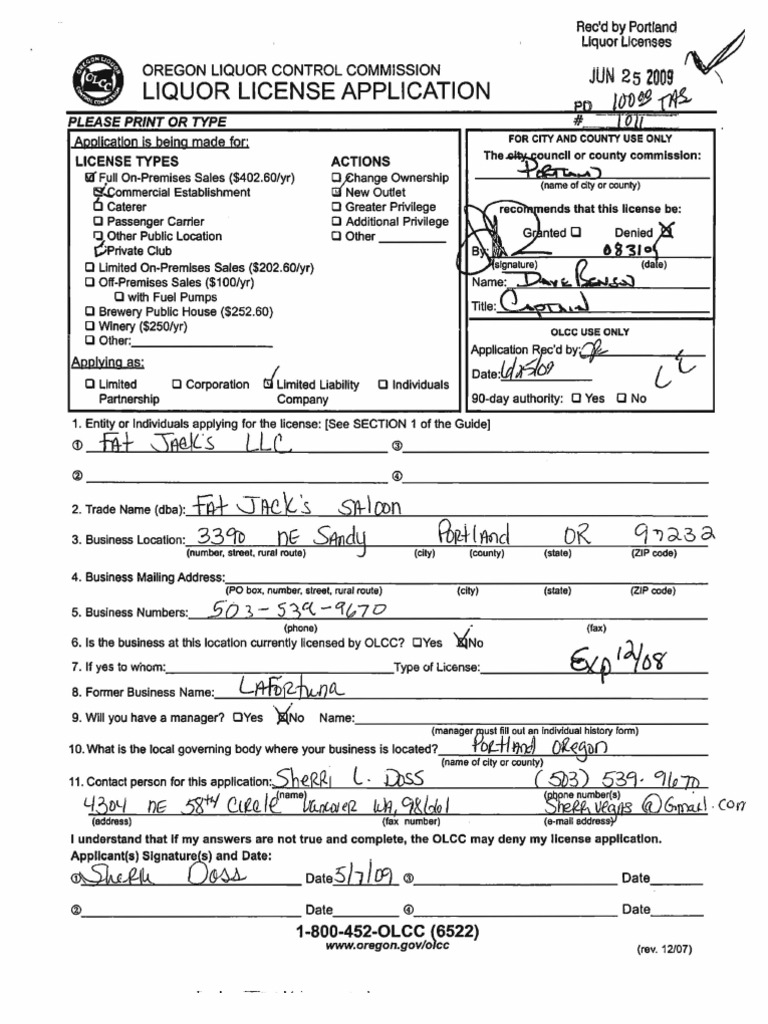 Rec'd by Portland
Liquor Licenses
JUN 25 2009
PD 100.00 TAS
# 1011
OREGON LIQUOR
OLCC
CONTROL COMMISSION
OREGON LIQUOR CONTROL COMMISSION
LIQUOR LICENSE APPLICATION
PLEASE PRINT OR TYPE
Application is being made for:
LICENSE TYPES
Full On-Premises Sales ($402.60/yr)
Commercial Establishment
Caterer
Passenger Carrier
Other Public Location
Private Club
Limited On-Premises Sales ($202.60/yr)
Off-Premises Sales ($100/yr)
with Fuel Pumps
Brewery Public House ($252.60)
Winery ($250/yr)
Other:
ACTIONS
Change Ownership
New Outlet
Greater Privilege
Additional Privilege
Other
Applying as:
Limited Partnership
Corporation
Limited Liability Company
Individuals
FOR CITY AND COUNTY USE ONLY
The city council or county commission:
Portland
(name of city or county)
recommends that this license be:
Granted Denied
By: 083109
(signature) (date)
Name: Dave Benson
Title: Captain
OLCC USE ONLY
Application Rec'd by:
Date: 6/25/09
90-day authority: Yes No
1. Entity or Individuals applying for the license: [See SECTION 1 of the Guide]
① FAt JAck's LLC ③
② ④
2. Trade Name (dba): FAt JAck's SAloon
3. Business Location: 3390 NE SAndy Portland OR 97232
(number, street, rural route) (city) (county) (state) (ZIP code)
4. Business Mailing Address:
(PO box, number, street, rural route) (city) (state) (ZIP code)
5. Business Numbers: 503-539-9670
(phone) (fax)
6. Is the business at this location currently licensed by OLCC? Yes No
7. If yes to whom: Type of License: Exp 12/08
8. Former Business Name: LAFortuna
9. Will you have a manager? Yes No Name:
(manager must fill out an individual history form)
10. What is the local governing body where your business is located? Portland Oregon
(name of city or county)
11. Contact person for this application: Sherri L. Doss (503) 539-9670
(name) (phone number(s)
4304 NE 58th Circle Vancover WA, 98661 Sherrivegas@Gmail.com
(address) (fax number) (e-mail address)
I understand that if my answers are not true and complete, the OLCC may deny my license application.
Applicant(s) Signature(s) and Date:
① Sherri Doss Date 5/7/09 ③ Date
② Date ④ Date
1-800-452-OLCC (6522)
www.oregon.gov/olcc
(rev. 12/07)